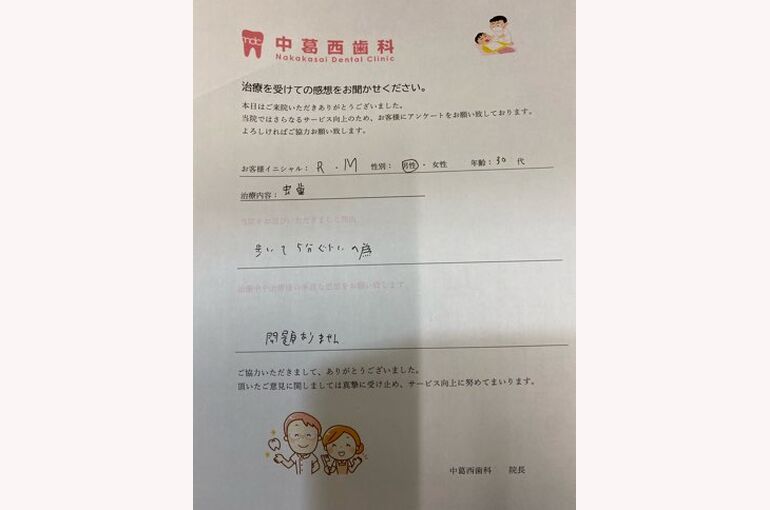 mdc
中葛西歯科
Nakakasai Dental Clinic
治療を受けての感想をお聞かせください。
本日はご来院いただきありがとうございました。
当院ではさらなるサービス向上のため、お客様にアンケートをお願い致しております。
よろしければご協力お願い致します。
お客様イニシャル： R . M 性別： 男性 ・ 女性 年齢： 30 代
治療内容： 虫歯
当院をお選びいただきました理由
歩いて5分ぐらいの為
治療中や治療後の率直な感想をお願い致します。
問題ありません
ご協力いただきまして、ありがとうございました。
頂いたご意見に関しましては真摯に受け止め、サービス向上に努めてまいります。
中葛西歯科 院長